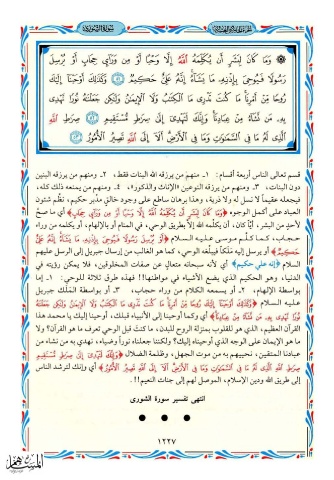 سورة الشورى
وَمَا كَانَ لِبَشَرٍ أَن يُكَلِّمَهُ اللَّهُ إِلَّا وَحْيًا أَوْ مِن وَرَآئِ حِجَابٍ أَوْ يُرْسِلَ
رَسُولًا فَيُوحِيَ بِإِذْنِهِ مَا يَشَآءُ إِنَّهُ عَلِيٌّ حَكِيمٌ ٥١ وَكَذَٰلِكَ أَوْحَيْنَآ إِلَيْكَ
رُوحًا مِّنْ أَمْرِنَا مَا كُنتَ تَدْرِي مَا الْكِتَابُ وَلَا الْإِيمَانُ وَلَٰكِن جَعَلْنَاهُ نُورًا نَّهْدِي
بِهِ مَن نَّشَآءُ مِنْ عِبَادِنَا وَإِنَّكَ لَتَهْدِي إِلَىٰ صِرَاطٍ مُّسْتَقِيمٍ ٥٢ صِرَاطِ اللَّهِ
الَّذِي لَهُ مَا فِي السَّمَاوَاتِ وَمَا فِي الْأَرْضِ أَلَآ إِلَى اللَّهِ تَصِيرُ الْأُمُورُ ٥٣
قسم تعالى الناس أربعة أقسام: ١ـ منهم من يرزقه الله البنات فقط، ٢ـ ومنهم من يرزقه البنين
دون البنات، ٣ـ ومنهم من يرزقه النوعين «الإناث والذكور»، ٤ـ ومنهم من يمنعه ذلك كله،
فيجعله عقيماً لا نسل له ولا ذرية، وهذا برهان ساطع على وجود خالق مدبر حكيم، نظم شئون
العباد على أكمل الوجوه ﴿وَمَا كَانَ لِبَشَرٍ أَن يُكَلِّمَهُ اللَّهُ إِلَّا وَحْيًا أَوْ مِن وَرَآئِ حِجَابٍ﴾ أي ما صح
لأحدٍ من البشر، أيًّا كان، أن يكلمه الله إلَّا بطريق الوحي، في المنام أو بالإلهام، أو يكلمه من وراء
حجاب، كما كلَّم موسى عليه السلام ﴿أَوْ يُرْسِلَ رَسُولًا فَيُوحِيَ بِإِذْنِهِ مَا يَشَآءُ إِنَّهُ عَلِيٌّ
حَكِيمٌ﴾ أو يرسل إليه ملَكاً فيبلغه الوحي، كما هو الغالب من إرسال جبريل إلى الرسل عليهم
السلام ﴿إنه علي حكيم﴾ أي لأنه سبحانه متعال عن صفات المخلوقين، فلا يمكن رؤيته في
الدنيا، وهو الحكيم الذي يضع الأشياء في مواطنها!! فهذه طرق ثلاثة للوحي: ١ـ إما
بواسطة الإلهام، ٢ـ أو بسمعه الكلام من وراء حجاب، ٣ـ أو بواسطة الملَك جبريل
عليه السلام ﴿وَكَذَٰلِكَ أَوْحَيْنَآ إِلَيْكَ رُوحًا مِّنْ أَمْرِنَا مَا كُنتَ تَدْرِي مَا الْكِتَابُ وَلَا الْإِيمَانُ وَلَٰكِن جَعَلْنَاهُ
نُورًا نَّهْدِي بِهِ مَن نَّشَآءُ مِنْ عِبَادِنَا﴾ أي وكما أوحينا إلى الأنبياء قبلك، أوحينا إليك يا محمد هذا
القرآن العظيم، الذي هو للقلوب بمنزلة الروح للبدن، ما كنت قبل الوحي تعرف ما هو القرآن؟ ولا
ما هو الإيمان على الوجه الذي أوحيناه إليك؟ ولكننا جعلناه نوراً وضياء، نهدي به من نشاء من
عبادنا المتقين، نحييهم به من موت الجهل، وظلمة الضلال ﴿وَإِنَّكَ لَتَهْدِي إِلَىٰ صِرَاطٍ مُّسْتَقِيمٍ
صِرَاطِ اللَّهِ الَّذِي لَهُ مَا فِي السَّمَاوَاتِ وَمَا فِي الْأَرْضِ أَلَآ إِلَى اللَّهِ تَصِيرُ الْأُمُورُ﴾ أي وإنك لترشد الناس
إلى طريق الله ودين الإسلام، الموصل لهم إلى جنات النعيم!!
انتهى تفسير سورة الشورى
١٢٢٧